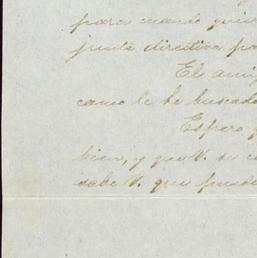 para cuando quie
junta directiva pa
El ami
cano le he buscado
Espero q
bien, y que V. se c
sabe V. que puede